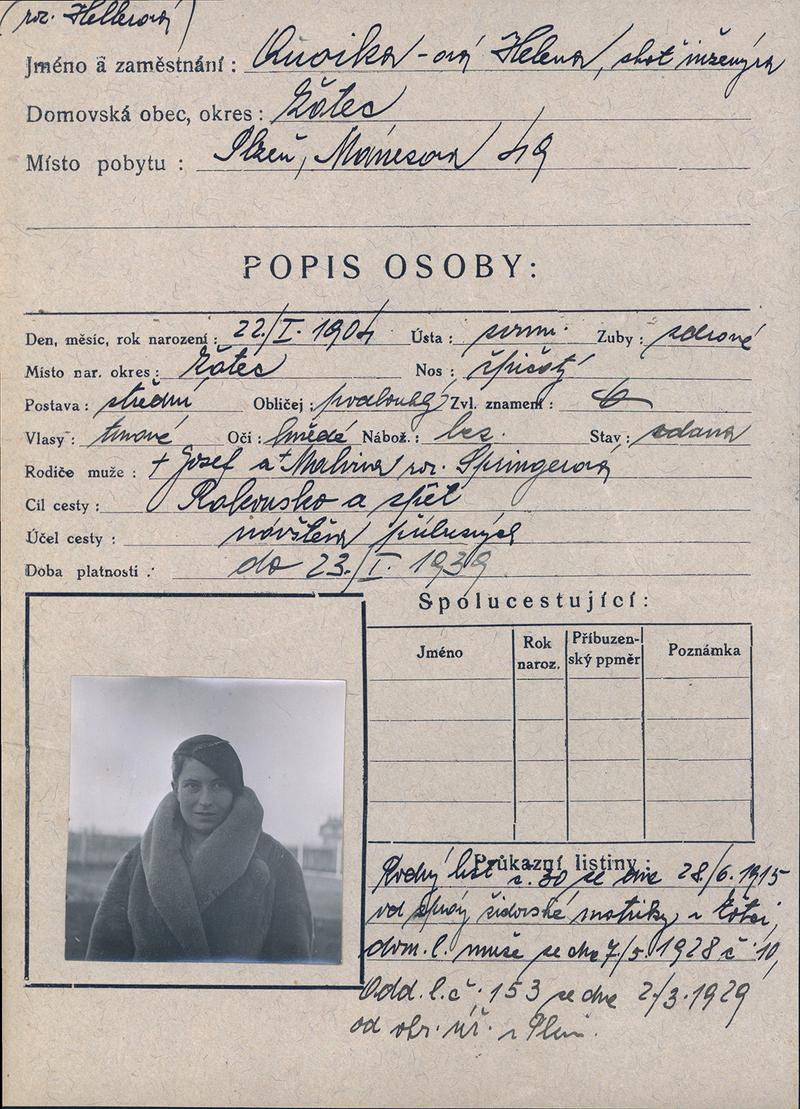 (roz. Hellerová)
Jméno a zaměstnání : -ová Helena, choť inženýra
Domovská obec, okres : Žatec
Místo pobytu : Plzeň, Mánesova 49
POPIS OSOBY:
Den, měsíc, rok narození : 22./I. 1904 Ústa : Zuby : zdravé
Místo nar. okres : Žatec Nos : špičatý
Postava : střední Obličej : podlouhlý Zvl. znamení :
Vlasy : tmavé Oči : hnědé Nábož. : bez. Stav : vdaná
Rodiče muže : + Josef a + Malvina roz. Springerová
Cíl cesty : Rakousko a zpět
Účel cesty : návštěva příbuzných
Doba platnosti : do 23./I. 1939
Spolucestující :
Jméno Rok naroz. Příbuzen-ský poměr Poznámka
Průkazní listiny :
Rodný list č. 30 ze dne 28/6. 1915
od správy židovské matriky v Žatci,
dom. l. muže ze dne 7/5. 1928 č. 10,
Odd. l. č. 153 ze dne 2/3. 1929
od v Plzni.